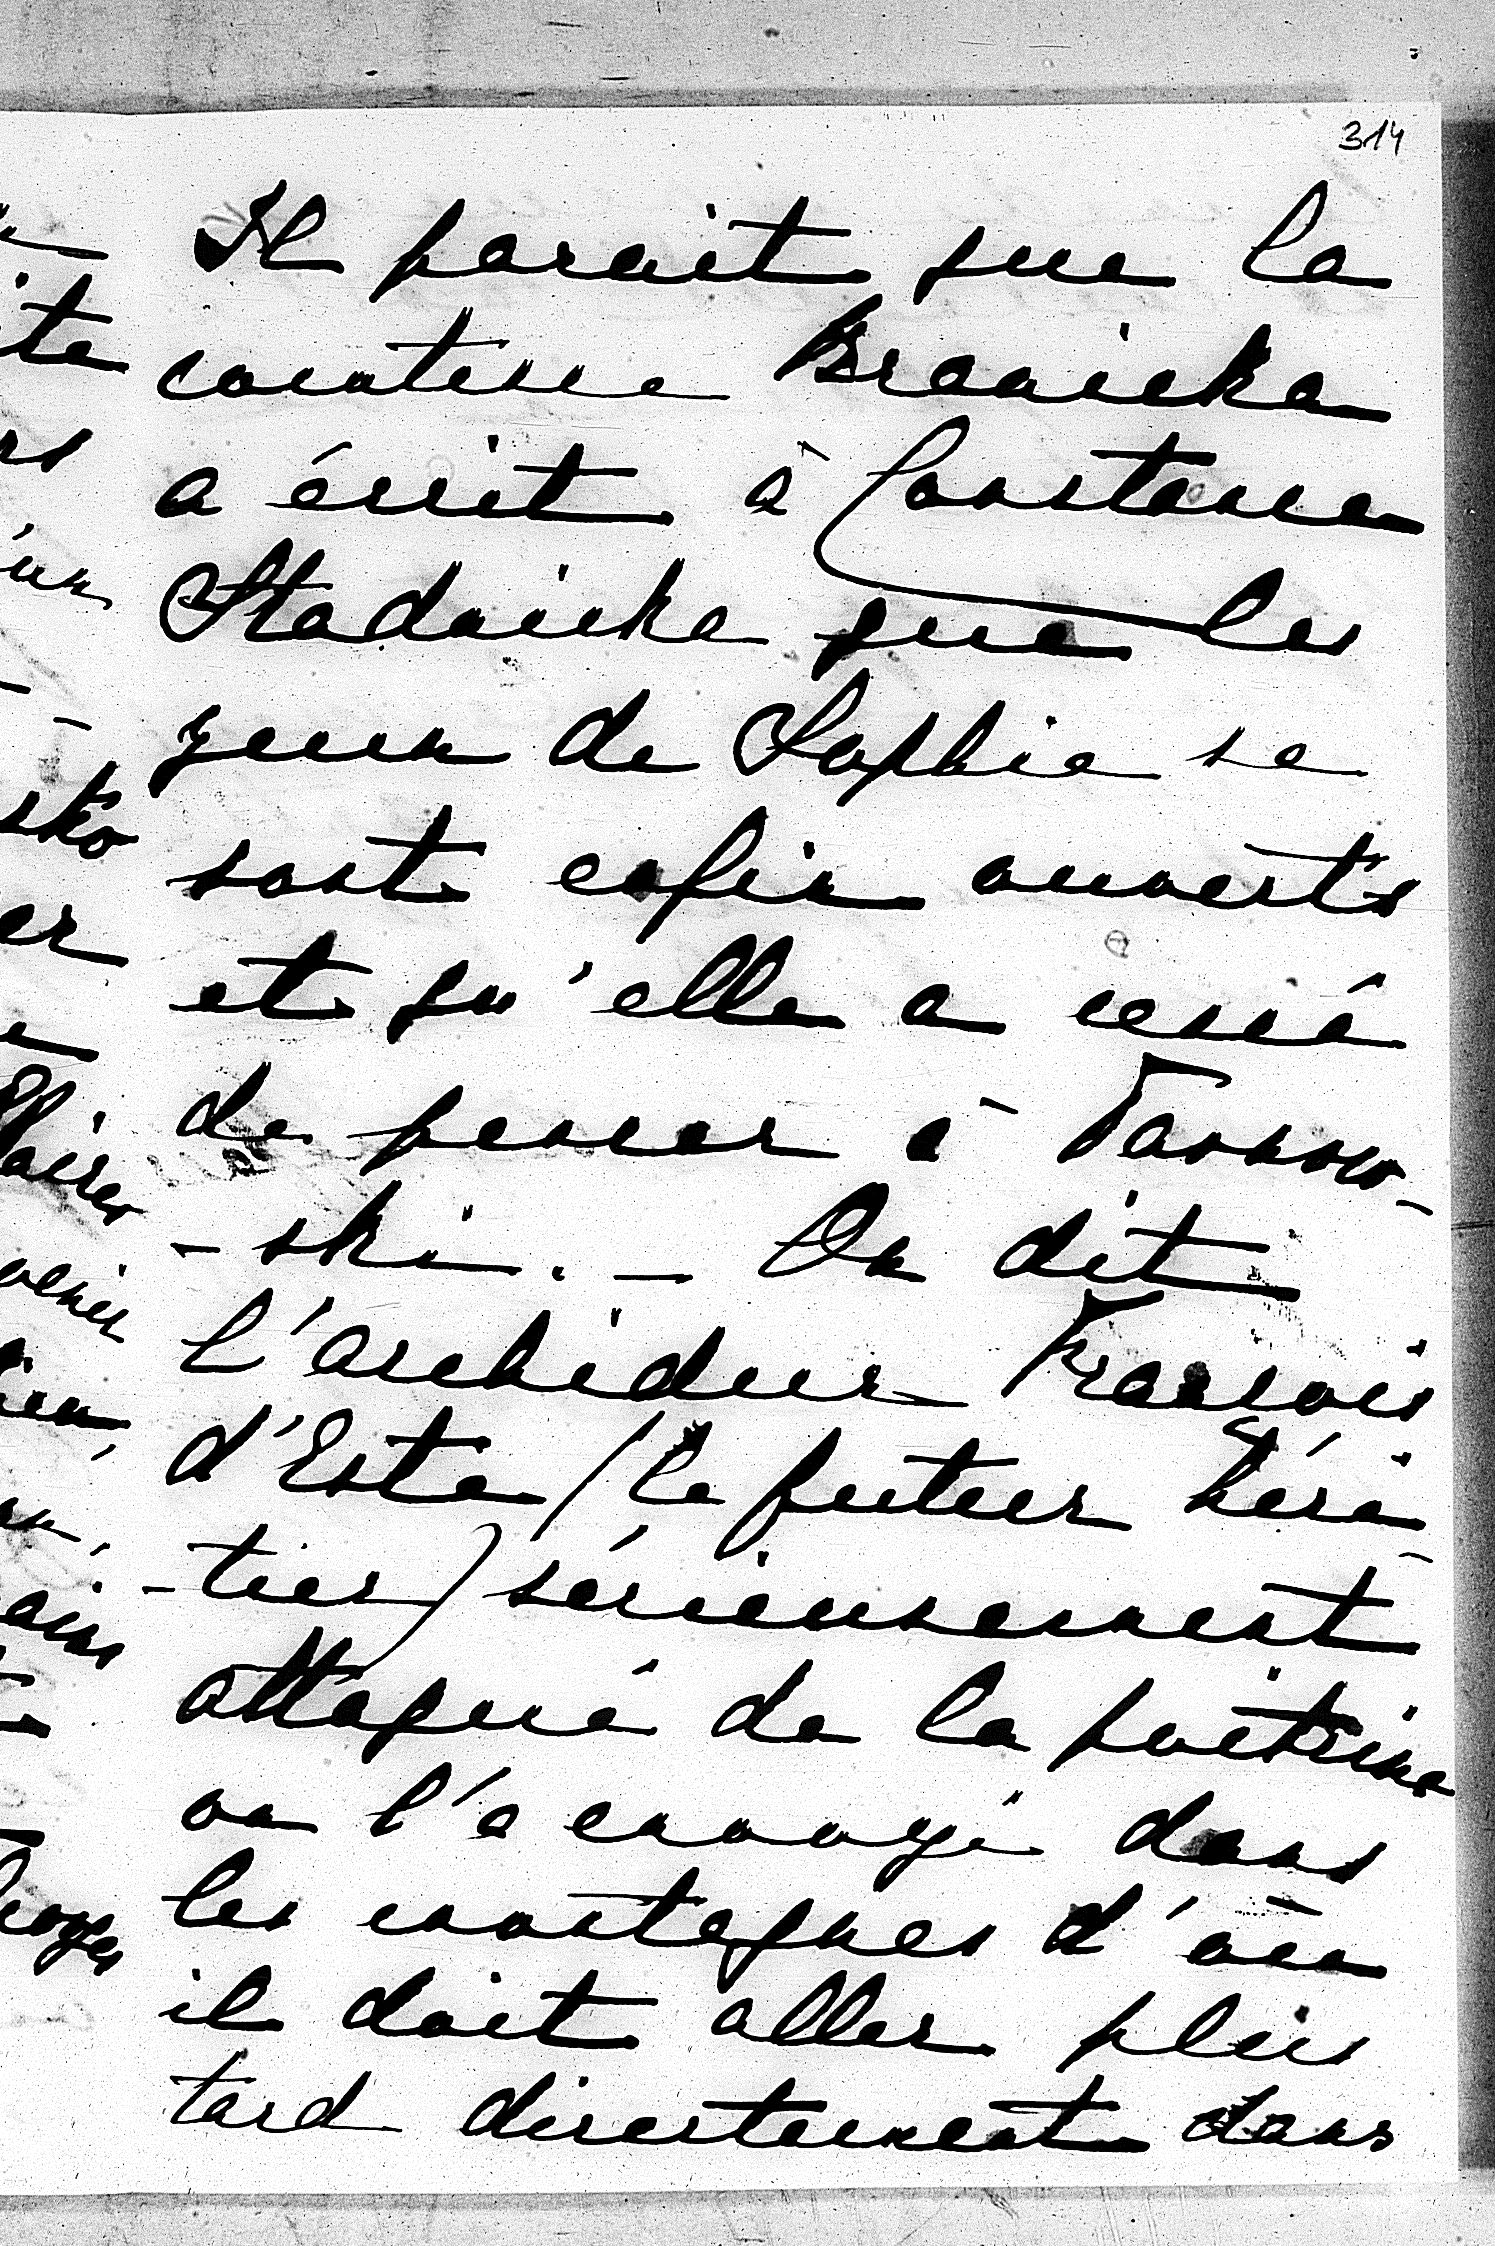 314
Il parait que la
comtesse Branicka
a écrit à Constance
Stadnicka que les
yeux de Sophie se
sont enfin ouverts
et qu'elle a cessé
de penser à Tarnow-
-ski. — On dit
l'archiduc François
d'Este /le futur héri-
-tier/ sérieusement
attaqué de la poitrine
on l'a envoyé dans
les montagnes d'où
il doit aller plus
tard directement dans